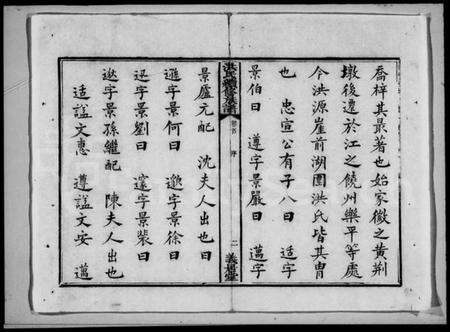 喬梓其最著也始家徽之黄荆
墩後遷於江之饒州樂平等處
今洪源崖前湖園洪氏皆其胄
也 忠宣公有子八曰 适字
景伯曰 遵字景嚴曰 邁字
卷首 序 二
景廬元配 沈夫人出也曰
遜字景何曰 字景徐曰
迅字景劉曰 字景裴曰
逖字景孫繼配 陳夫人出也
适諡文惠 遵諡文安 邁